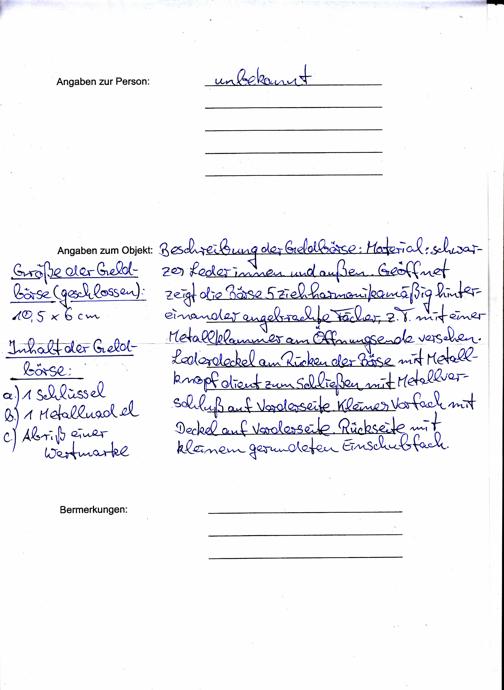 Angaben zur Person: unbekannt
Angaben zum Objekt: Beschreibung der Geldbörse: Material: schwar-
zes Leder innen und außen. Geöffnet
zeigt die Börse 5 ziehharmonikamäßig hinter-
einander angebrachte Fächer, z.T. mit einer
Metallklammer am Öffnungsende versehen.
Lederdeckel am Rücken der Börse mit Metall-
knopf dient zum Schließen mit Metallver-
schluß auf Vorderseite. Kleines Vorfach mit
Deckel auf Vorderseite. Rückseite mit
kleinem gerundeten Einschubfach.
Größe der Geld-
börse (geschlossen):
10,5 x 6 cm
Inhalt der Geld-
börse:
a) 1 Schlüssel
b) 1 Metallnadel
c) Abriß einer
Wertmarke
Bermerkungen: